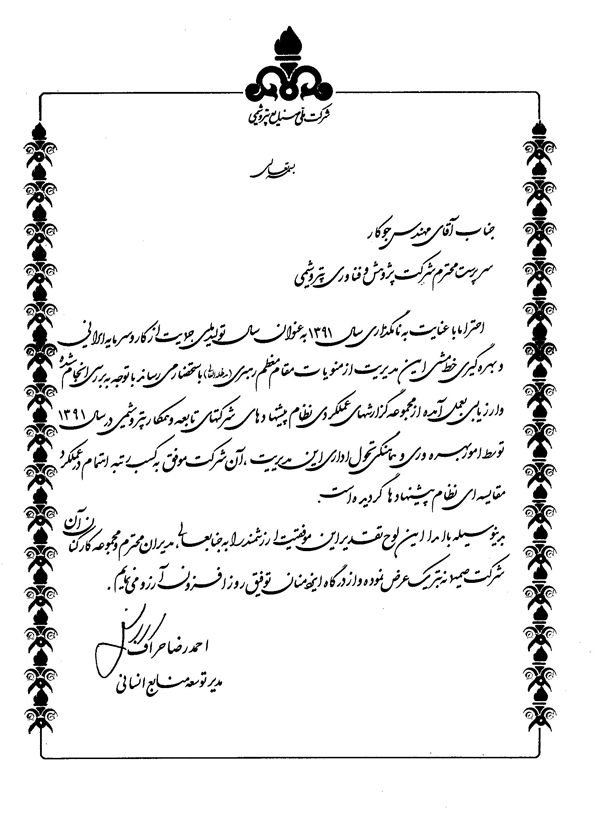 شرکت ملی صنایع پتروشیمی
بسمه تعالی
جناب آقای مهندس جوکار
سرپرست محترم شرکت پژوهش و فناوری پتروشیمی
احتراما با عنایت به نامگذاری سال ۱۳۹۱ به عنوان سال تولید ملی حمایت از کار و سرمایه ایرانی
و بهره گیری خط مشی این مدیریت از منویات مقام معظم رهبری (مدظله العالی) باستحضار می رساند با توجه به بررسی انجام شده
و ارزیابی بعمل آمده از مجموعه گزارشهای عملکردی نظام پیشنهادهای شرکتهای تابعه و همکار پتروشیمی در سال ۱۳۹۱
توسط امور بهره وری و هماهنگی تحول اداری این مدیریت ، آن شرکت موفق به کسب رتبه اهتمام در عملکرد
مقایسه ای نظام پیشنهادها گردیده است.
بدینوسیله با اهدا این لوح تقدیر این موفقیت ارزشمند را به جنابعالی، مدیران محترم و مجموعه کارکنان آن
شرکت صمیمانه تبریک عرض نموده و از درگاه ایزد منان توفیق روز افزون آرزو می نمایم .
احمدرضا
مدیر توسعه منابع انسانی